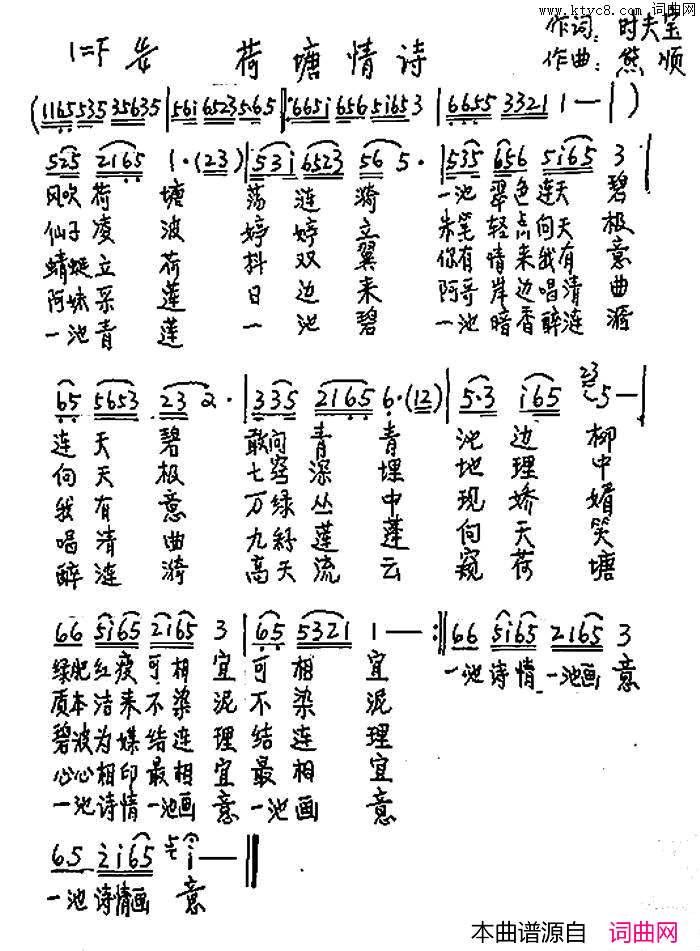 www.ktyc8.com 词曲网
1=F 荷塘情诗 作词:时夫宝
作曲:熊顺
(1165535 35635|56i 6523 565|665i 656 5i65 3|6655 3321 1—|)
525 2165 1·(23)|53i 6523 56 5·|535 656 5i65 3|
风吹荷塘荡涟漪 一池翠色连天碧
仙子凌波婷婷立 朱笔轻点向天极
蜻蜓立荷抖双翼 你有情来我有意
阿妹采莲日边来 阿哥岸边唱清曲
一池青莲一池碧 一池暗香醉涟漪
65 5653 23 2·|335 2165 6·(12)|5·3 i65 5—|
连天碧 敢问青青池边柳
向天极 七窍深埋地理中
我有意 万绿丛中现娇媚
唱清曲 九 莲蓬向天笑
醉涟漪 高天流云窥荷塘
66 5i65 2i65 3|65 5321 1——:||66 5i65 2i65 3
绿肥红瘦可相宜可相宜 一池诗情一池画意
质本洁来不染泥不染泥
碧波为媒结连理结连理
心心相印最相宜最相宜
一池诗情一池画意一池画意
65 2i65 i——||
一池诗情画意
本曲谱源自 词曲网